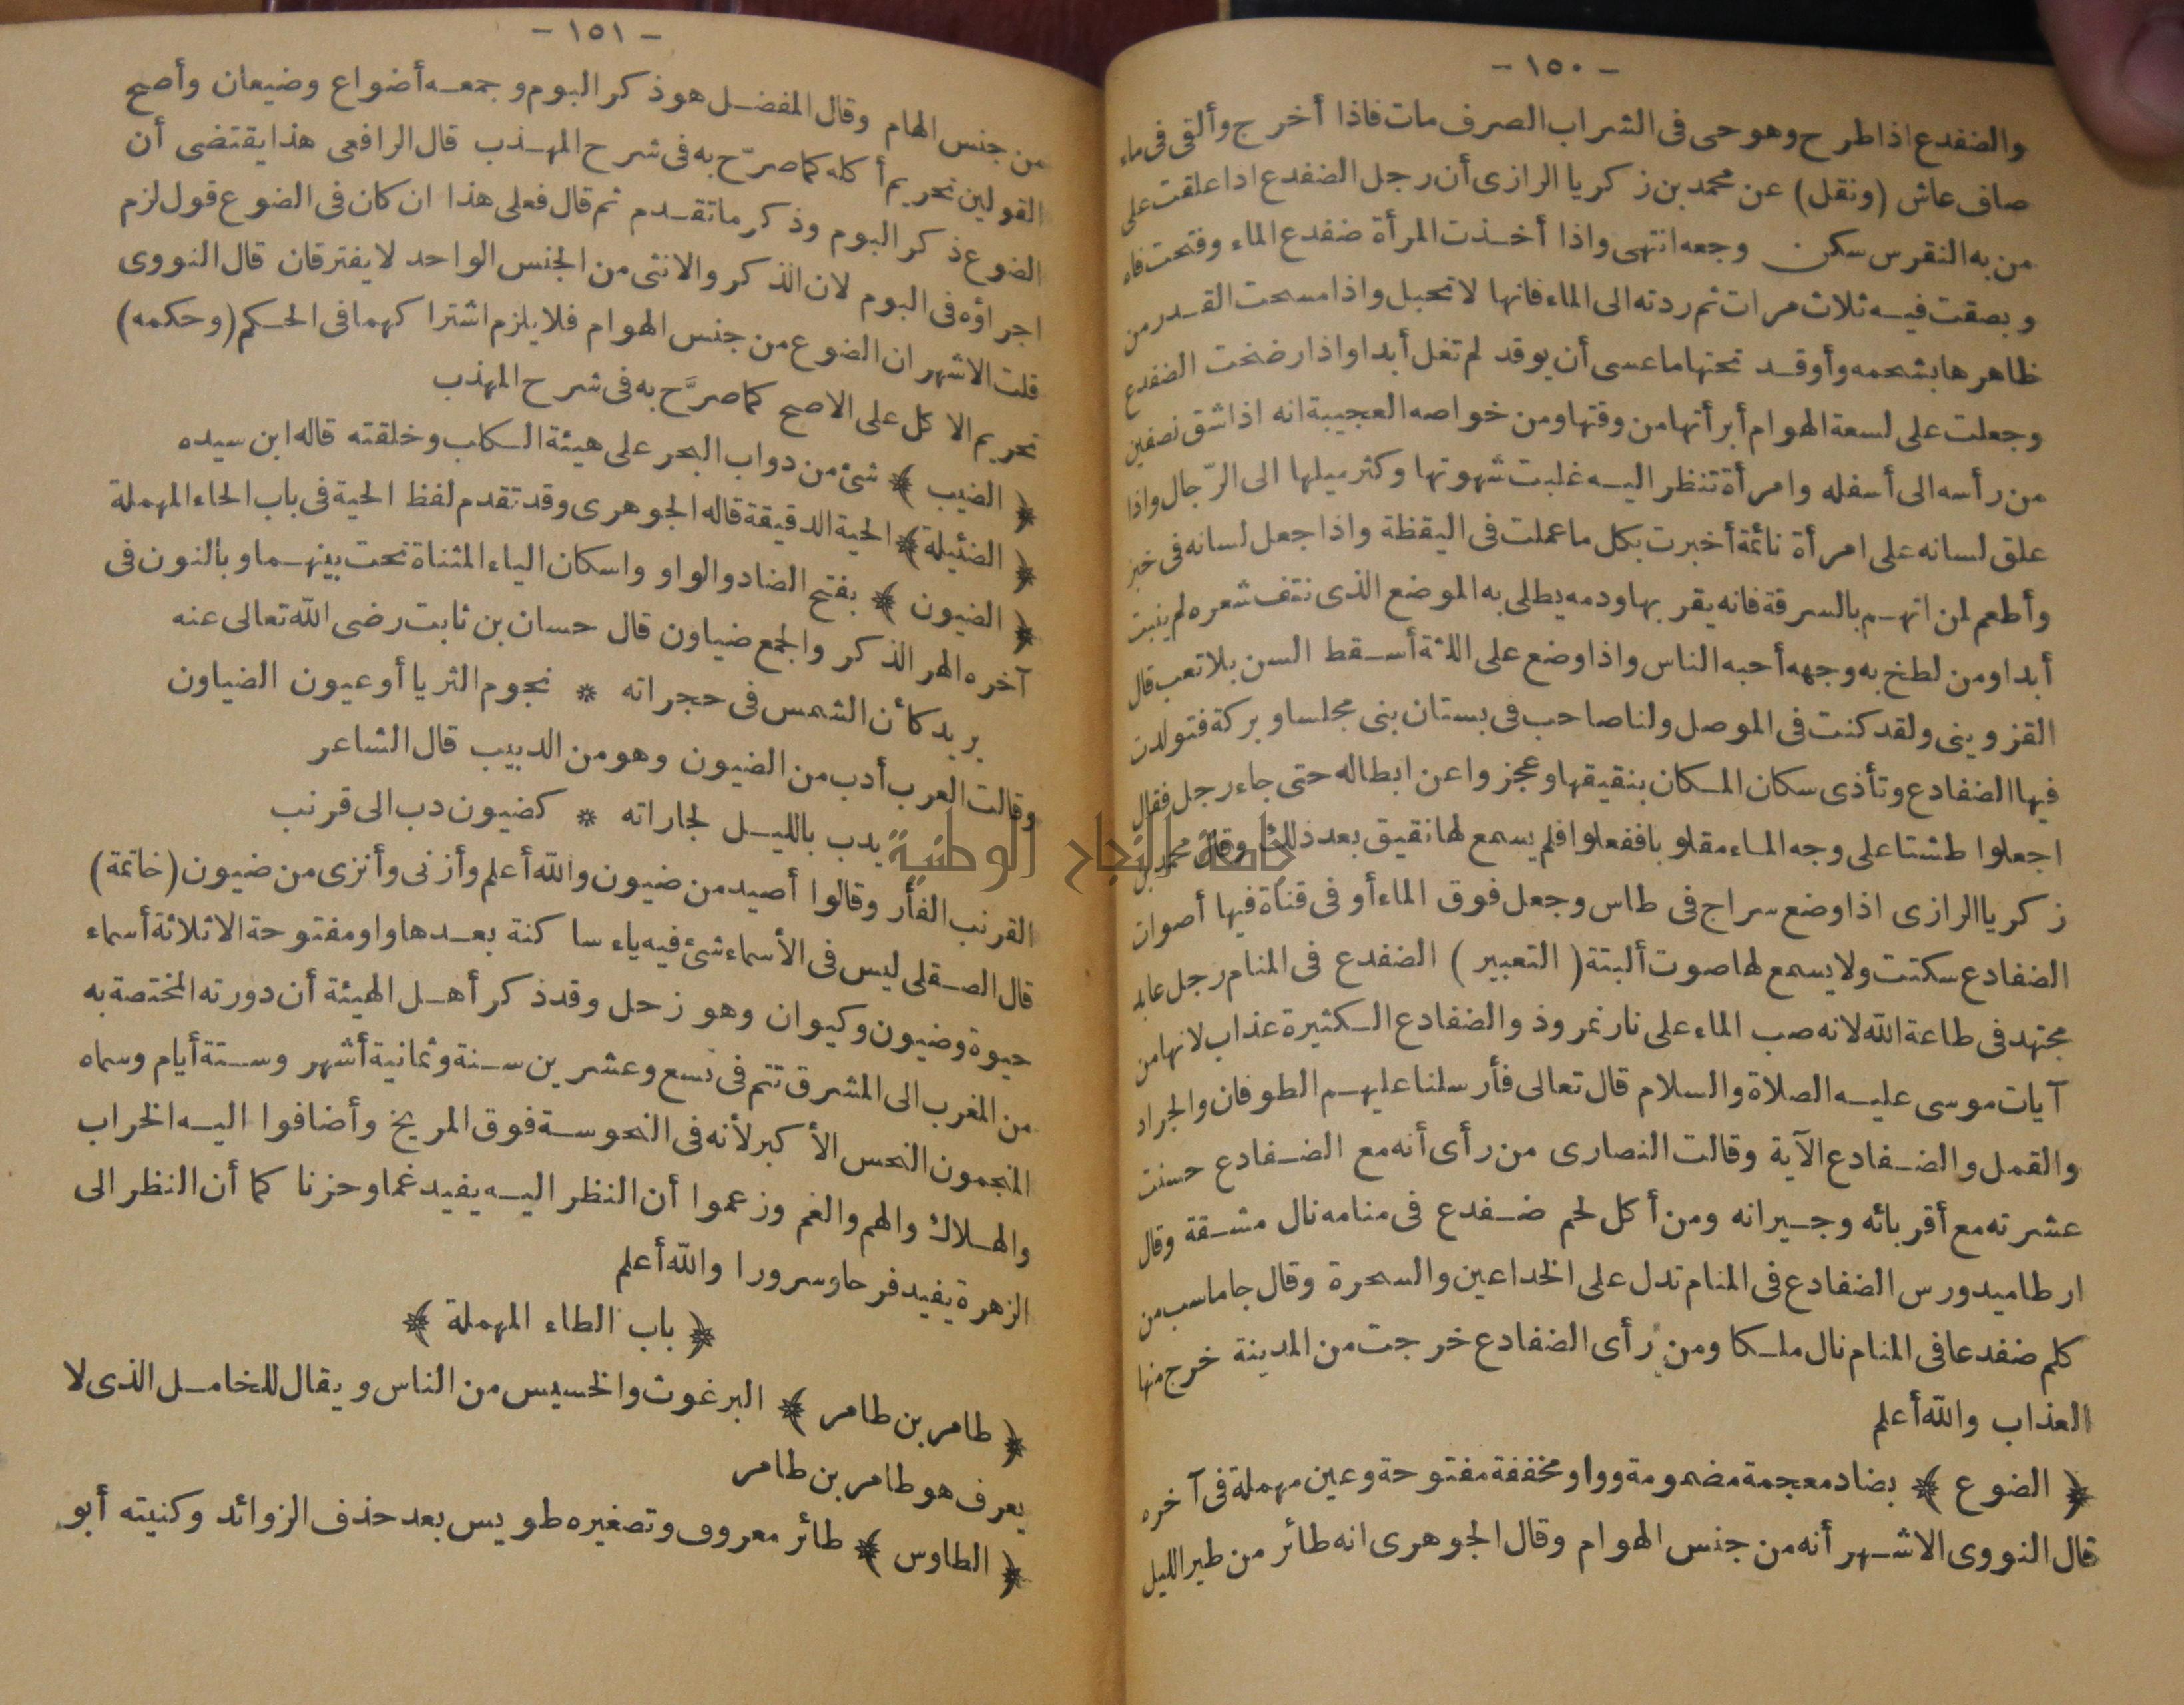 - ١٥٠ -
والضفدع اذا طرح وهو حى فى الشراب الصرف مات فاذا أخرج وألقى فى ماء
صاف عاش (ونقل) عن محمد بن زكريا الرازى أن رجل الضفدع اذا علقت على
من به النقرس سكن وجعه انتهى واذا أخذت المرأة ضفدع الماء وفتحت فاه
وبصقت فيه ثلاث مرات ثم ردته الى الماء فانها لا تحبل واذا مسحت القدر من
ظاهرها بشحمه وأوقد تحتها ما عسى أن يوقد لم تغل أبدا واذا رضخت الضفدع
وجعلت على لسعة الهوام أبرأتها من وقتها ومن خواصه العجيبة انه اذا شق نصفين
من رأسه الى أسفله وامرأة تنظر اليه غلبت شهوتها وكثر ميلها الى الرّجال واذا
علق لسانه على امرأة نائمة أخبرت بكل ما عملت فى اليقظة واذا جعل لسانه فى خبز
وأطعم لمن اتهم بالسرقة فانه يقر بها ودمه يطلى به الموضع الذى نتف شعره لم ينبت
أبدا ومن لطخ به وجهه أحبه الناس واذا وضع على اللثة أسقط السن بلا تعب قال
القزوينى ولقد كنت فى الموصل ولنا صاحب فى بستان بنى مجلسا وبركة فتولدت
فيها الضفادع وتأذى سكان المكان بنقيقها وعجزوا عن ابطاله حتى جاء رجل فقال
اجعلوا طشتا على وجه الماء مقلوبا ففعلوا فلم يسمع لها نقيق بعد ذلك وقال محمد بن
زكريا الرازى اذا وضع سراج فى طاس وجعل فوق الماء أو فى قناة فيها أصوات
الضفادع سكتت ولا يسمع لها صوت ألبتة (التعبير) الضفدع فى المنام رجل عابد
مجتهد فى طاعة الله لانه صب الماء على نار نمروذ والضفادع الكثيرة عذاب لانها من
آيات موسى عليه الصلاة والسلام قال تعالى فأرسلنا عليهم الطوفان والجراد
والقمل والضفادع الآية وقالت النصارى من رأى أنه مع الضفادع حسنت
عشرته مع أقربائه وجيرانه ومن أكل لحم ضفدع فى منامه نال مشقة وقال
ارطاميدورس الضفادع فى المنام تدل على الخداعين والسحرة وقال جاماسب من
كلم ضفدعا فى المنام نال ملكا ومن رأى الضفادع خرجت من المدينة خرج منها
العذاب والله أعلم
﴿ الضوع ﴾ بضاد معجمة مضمومة وواو مخففة مفتوحة وعين مهملة فى آخره
قال النووى الاشهر أنه من جنس الهوام وقال الجوهرى انه طائر من طير الليل
- ١٥١ -
من جنس الهام وقال المفضل هو ذكر البوم وجمعه أضواع وضيعان وأصح
القولين تحريم أكله كما صرّح به فى شرح المهذب قال الرافعى هذا يقتضى أن
الضوع ذكر البوم وذكر ما تقدم ثم قال فعلى هذا ان كان فى الضوع قول لزم
اجراؤه فى البوم لان الذكر والانثى من الجنس الواحد لا يفترقان قال النووى
قلت الاشهر ان الضوع من جنس الهوام فلا يلزم اشتراكهما فى الحكم (وحكمه)
تحريم الاكل على الاصح كما صرَّح به فى شرح المهذب
﴿ الضيب ﴾ شئ من دواب البحر على هيئة الكلب وخلقته قاله ابن سيده
﴿ الضئيلة ﴾ الحية الدقيقة قاله الجوهرى وقد تقدم لفظ الحية فى باب الحاء المهملة
﴿ الضيون ﴾ بفتح الضاد والواو واسكان الياء المثناة تحت بينهما وبالنون فى
آخره الهر الذكر والجمع ضياون قال حسان بن ثابت رضى الله تعالى عنه
يريد كأن الشمس فى حجراته * نجوم الثريا أو عيون الضياون
وقالت العرب أدب من الضيون وهو من الدبيب قال الشاعر
يدب بالليل لجاراته * كضيون دب الى قرنب
القرنب الفأر وقالوا أصيد من ضيون والله أعلم وأزنى وأنزى من ضيون (خاتمة)
قال الصقلى ليس فى الأسماء شئ فيه ياء ساكنة بعدها واو مفتوحة الا ثلاثة أسماء
حيوة وضيون وكيوان وهو زحل وقد ذكر أهل الهيئة أن دورته المختصة به
من المغرب الى المشرق تتم فى تسع وعشرين سنة وثمانية أشهر وستة أيام وسماه
المنجمون النحس الأكبر لأنه فى النحوسة فوق المريخ وأضافوا اليه الخراب
والهلاك والهم والغم وزعموا أن النظر اليه يفيد غما وحزنا كما أن النظر الى
الزهرة يفيد فرحا وسرورا والله أعلم
﴿ باب الطاء المهملة ﴾
﴿ طامر بن طامر ﴾ البرغوث والخسيس من الناس ويقال للخامل الذى لا
يعرف هو طامر بن طامر
﴿ الطاوس ﴾ طائر معروف وتصغيره طويس بعد حذف الزوائد وكنيته أبو
جامعة النجاح الوطنية